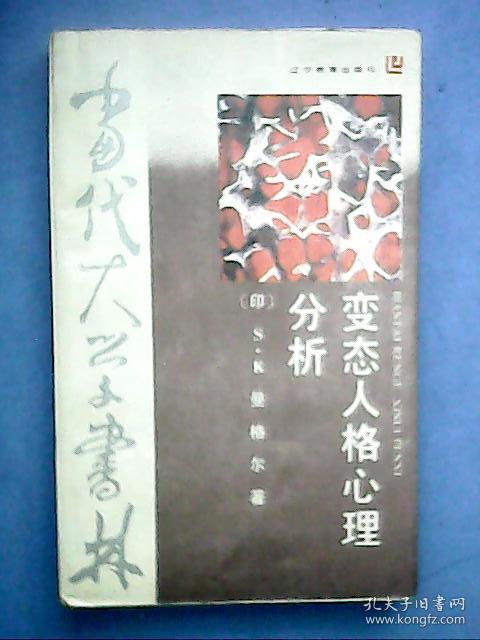 辽宁教育出版社
当代大众书林
变态人格心理
分析
BIANTAI RENGE XINLI FENXI
〔印〕S·K曼格尔著
孔夫子旧书网
www.kongfz.com